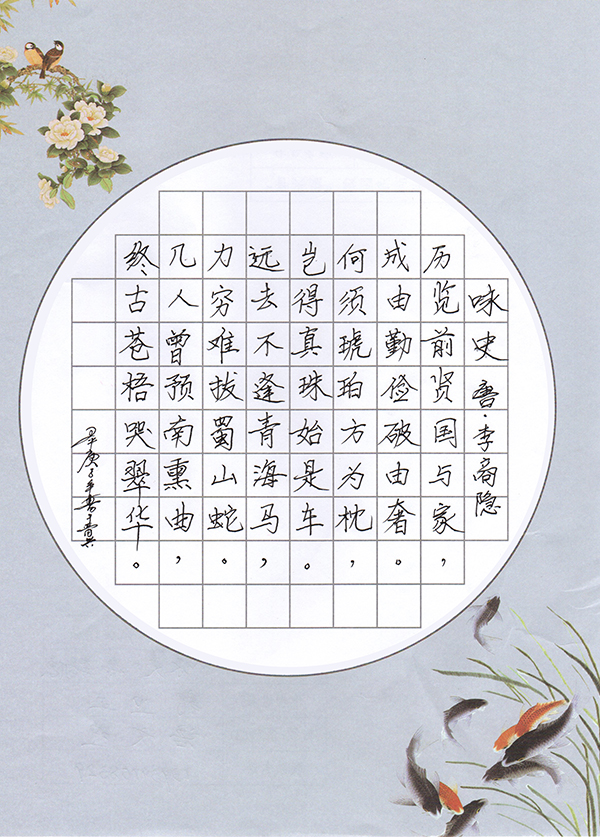 咏史 唐·李商隐
历览前贤国与家，
成由勤俭破由奢。
何须琥珀方为枕，
岂得真珠始是车。
远去不逢青海马，
力穷难拔蜀山蛇。
几人曾预南熏曲，
终古苍梧哭翠华。
庚子年